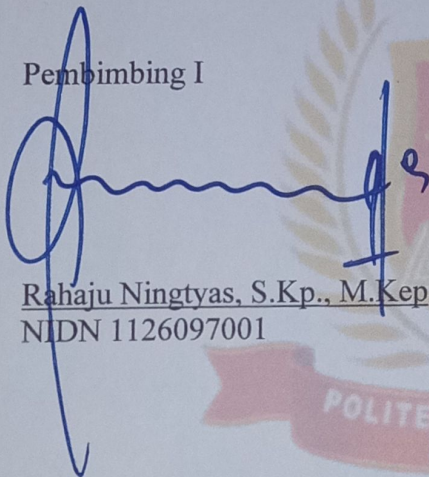 Pembimbing I
Rahaju Ningtyas, S.Kp., M.Kep
NIDN 1126097001
POLITE